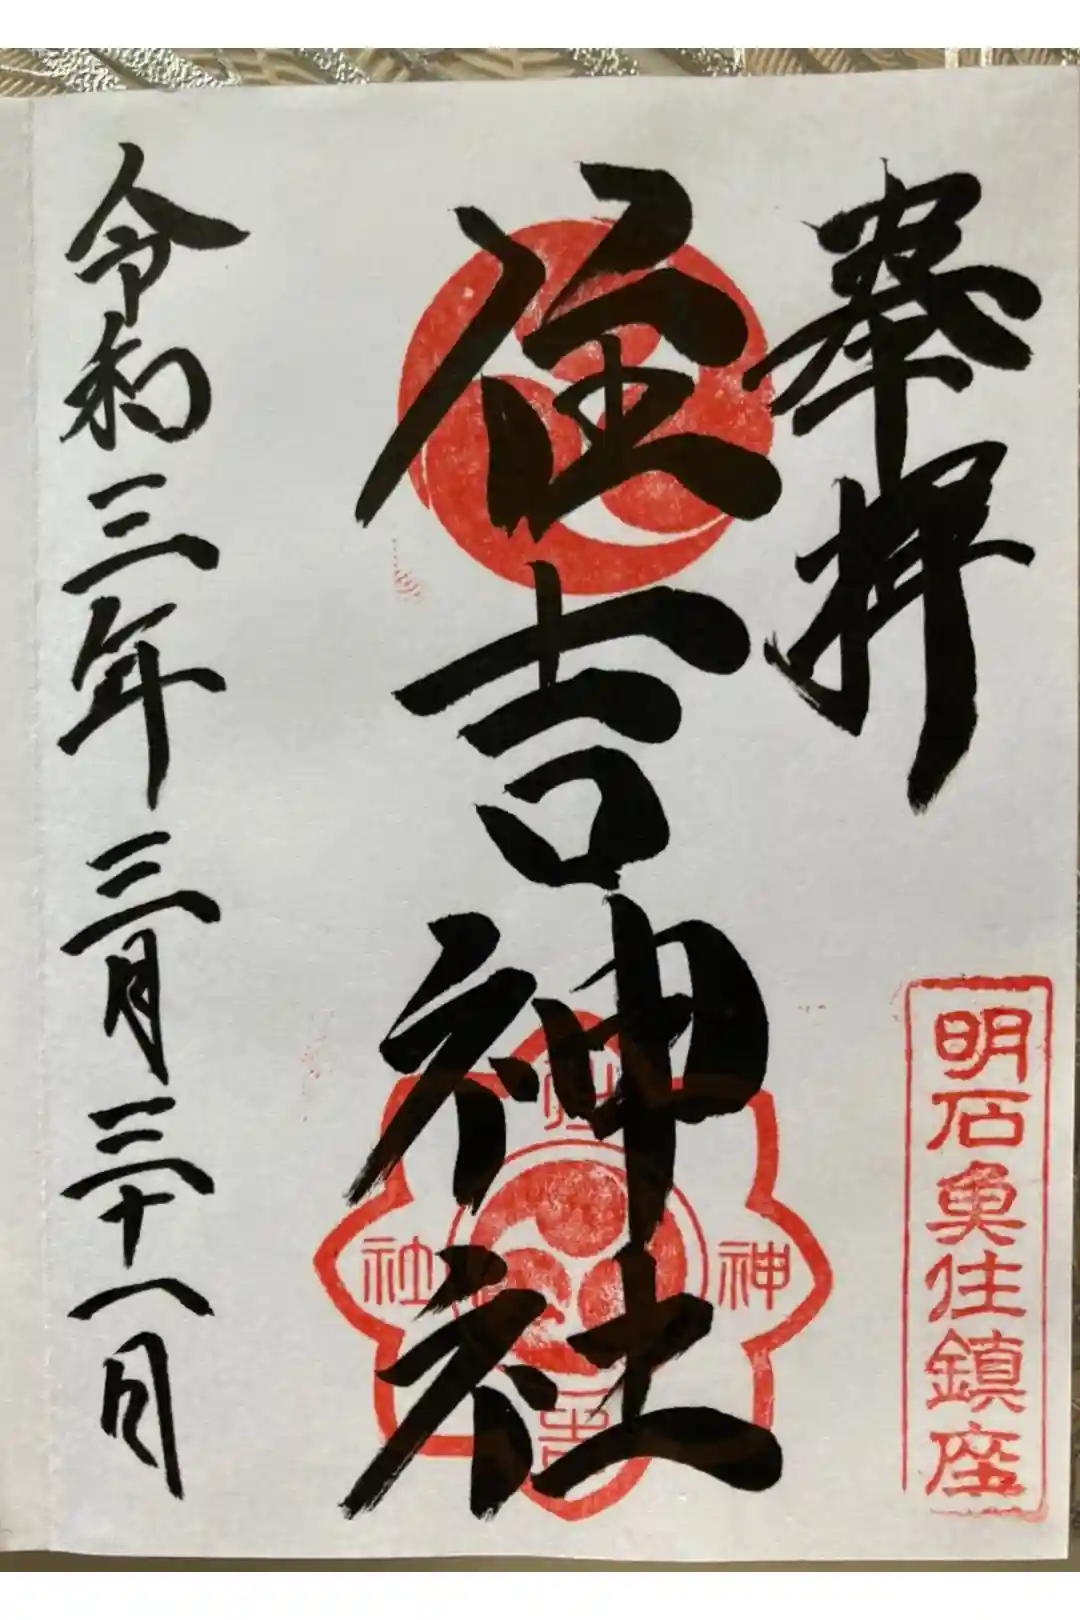 奉拝
明石魚住鎮座
住吉神社
住吉神社
令和三年三月三十一日